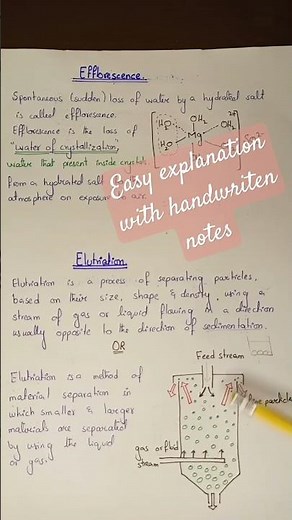 Efflorescence.
Spontaneous (sudden) loss of water by a hydrated salt
is called efflorescence.
Efflorescence is the loss of
"water of crystallization",
water that present inside crystals
from a hydrated salt
atmosphere on exposure to air.
OH₂
H₂O
OH₂
Mg
H₂O
2+
Easy explanation
with handwriten
notes
Elutriation
Elutriation is a process of separating particles,
based on their size, shape & density, using a
stream of gas or liquid flowing in a direction
usually opposite to the direction of sedimentation.
OR
Elutriation is a method of
material separation in
which smaller & larger
materials are separated
by using the liquid
or gas.
Feed stream
particles
gas or fluid
stream